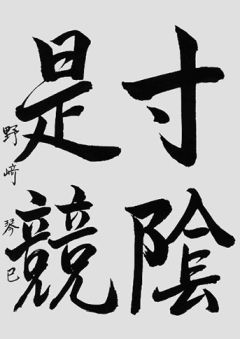 寸陰
是競
野崎琴巳